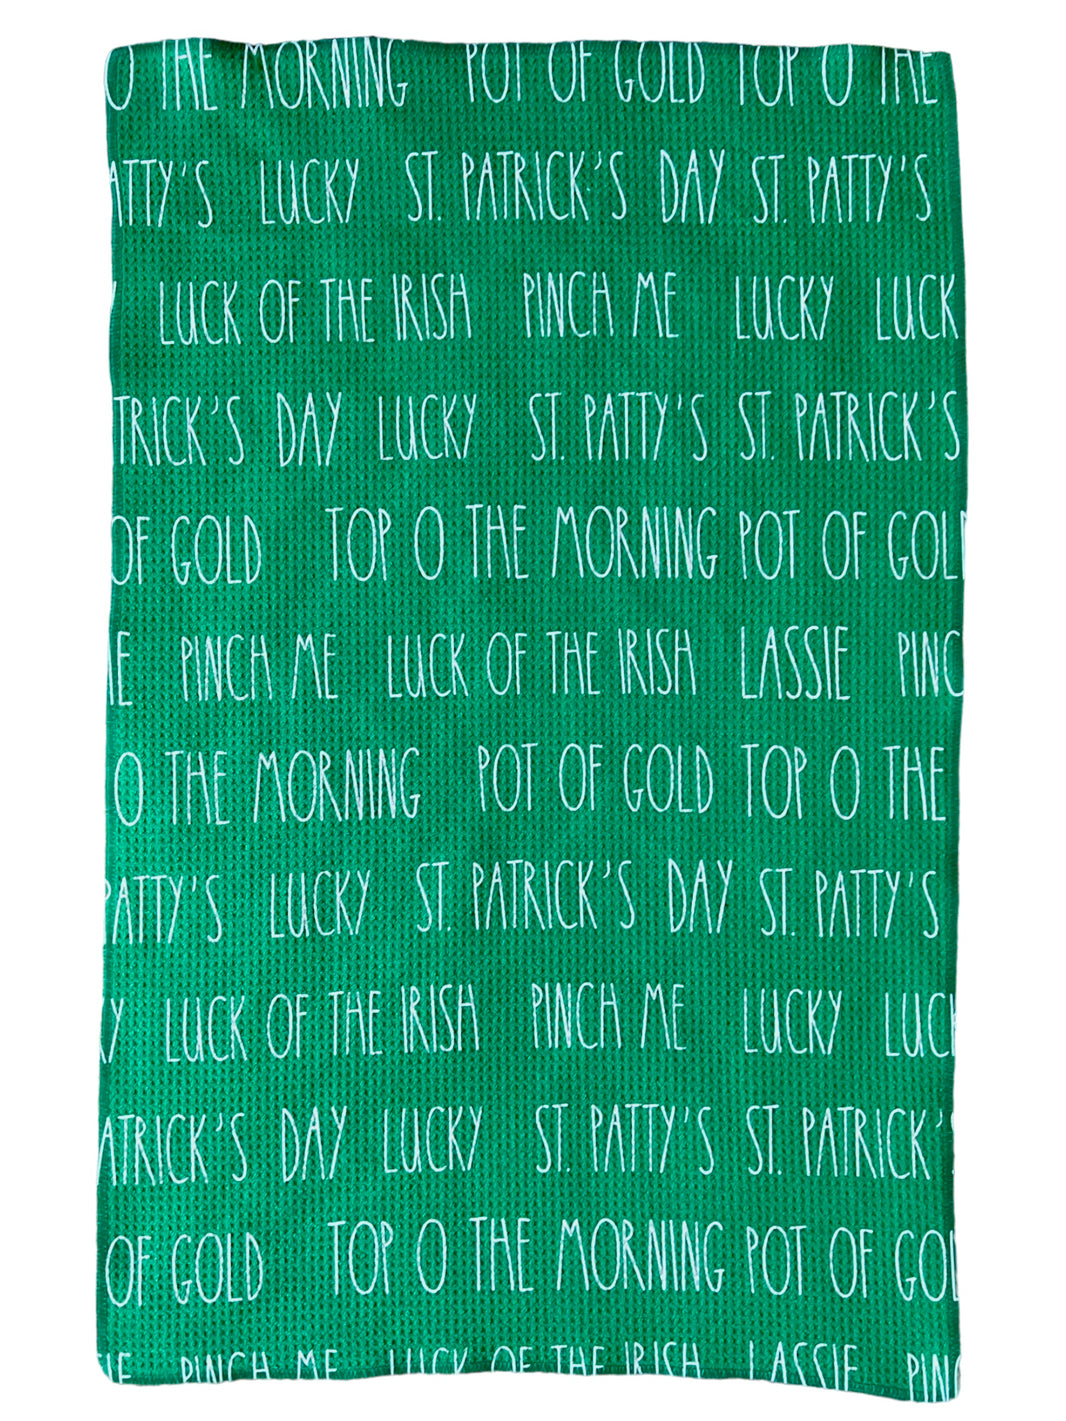 O THE MORNING POT OF GOLD TOP O THE
ATTY'S LUCKY ST. PATRICK'S DAY ST. PATTY'S
Y LUCK OF THE IRISH PINCH ME LUCKY LUCK
TRICK'S DAY LUCKY ST. PATTY'S ST. PATRICK'S
OF GOLD TOP O THE MORNING POT OF GOLD
IE PINCH ME LUCK OF THE IRISH LASSIE PINC
O THE MORNING POT OF GOLD TOP O THE
PATTY'S LUCKY ST. PATRICK'S DAY ST. PATTY'S
Y LUCK OF THE IRISH PINCH ME LUCKY LUCK
ATRICK'S DAY LUCKY ST. PATTY'S ST. PATRICK'S
OF GOLD TOP O THE MORNING POT OF GOL
IE PINCH ME LUCK OF THE IRISH LASSIE PINC